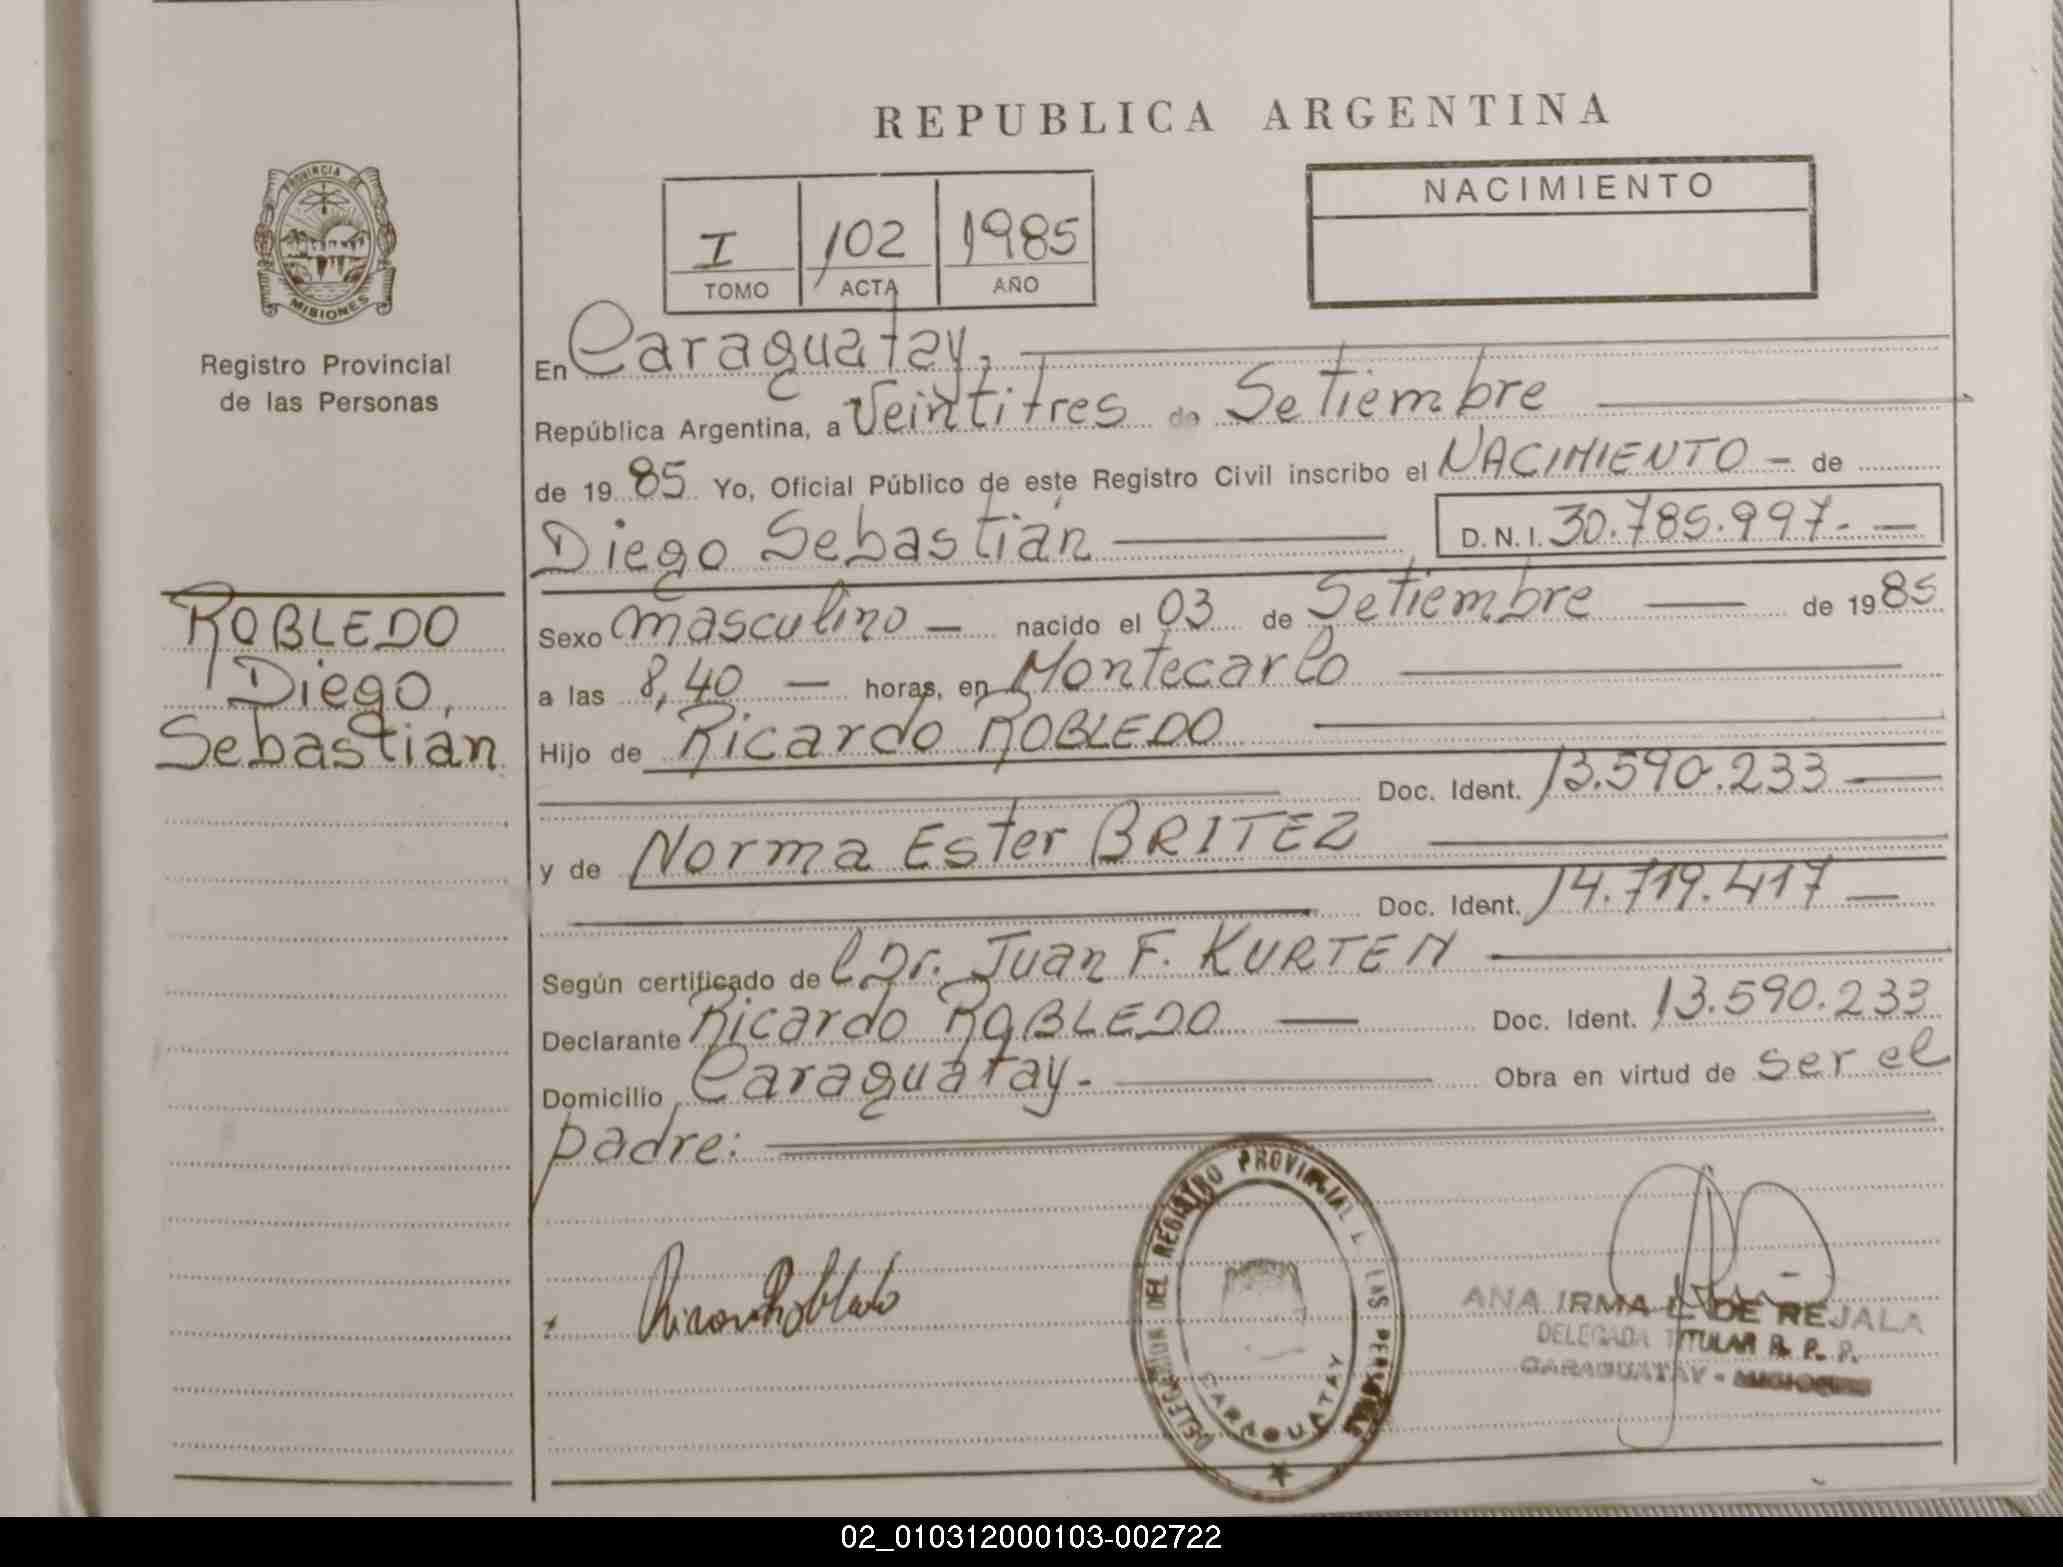 REPUBLICA ARGENTINA
PROVINCIA DE
MISIONES
Registro Provincial
de las Personas
I 102 1985
TOMO ACTA AÑO
NACIMIENTO
En Caraguatay,
República Argentina, a Veintitres de Setiembre
de 1985 Yo, Oficial Público de este Registro Civil inscribo el NACIMIENTO - de
Diego Sebastián D.N.I. 30.785.997.-
ROBLEDO
Diego,
Sebastián
Sexo masculino - nacido el 03 de Setiembre de 1985
a las 8,40 horas, en Montecarlo
Hijo de Ricardo ROBLEDO
Doc. Ident. 13.590.233
y de Norma Ester BRITEZ
Doc. Ident. 14.719.417
Según certificado de l Dr. Juan F. KURTEN
Declarante Ricardo ROBLEDO Doc. Ident. 13.590.233
Domicilio Caraguatay.- Obra en virtud de ser el
padre:
DELEGACION DEL REGISTRO PROVINCIAL LAS PERSONAS
CARAGUATAY
ANA IRMA L. DE REJALA
DELEGADA TITULAR R. P. P.
CARAGUATAY - MISIONES
02_010312000103-002722